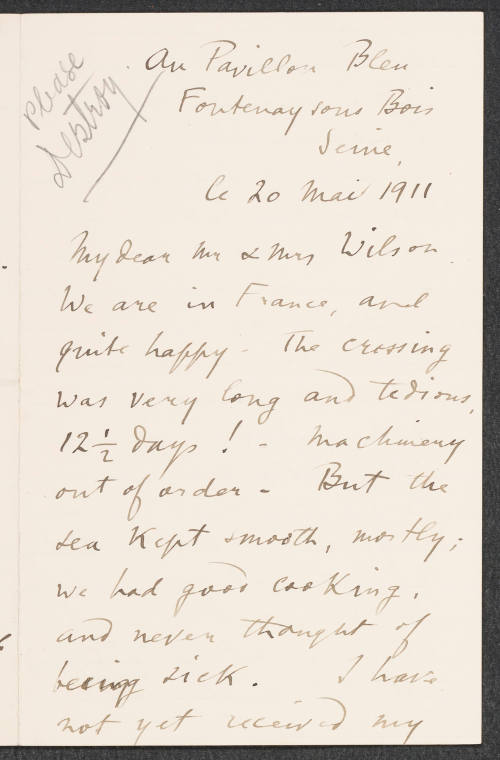 Please
Destroy
Au Pavillon Bleu
Fontenay sous Bois
Seine,
le 20 Mai 1911
My dear Mr & Mrs Wilson.
We are in France, and
quite happy - The crossing
was very long and tedious,
12 1/2 days ! - Machinery
out of order - But the
sea kept smooth, mostly;
we had good cooking,
and never thought of
being sick. I have
not yet received my